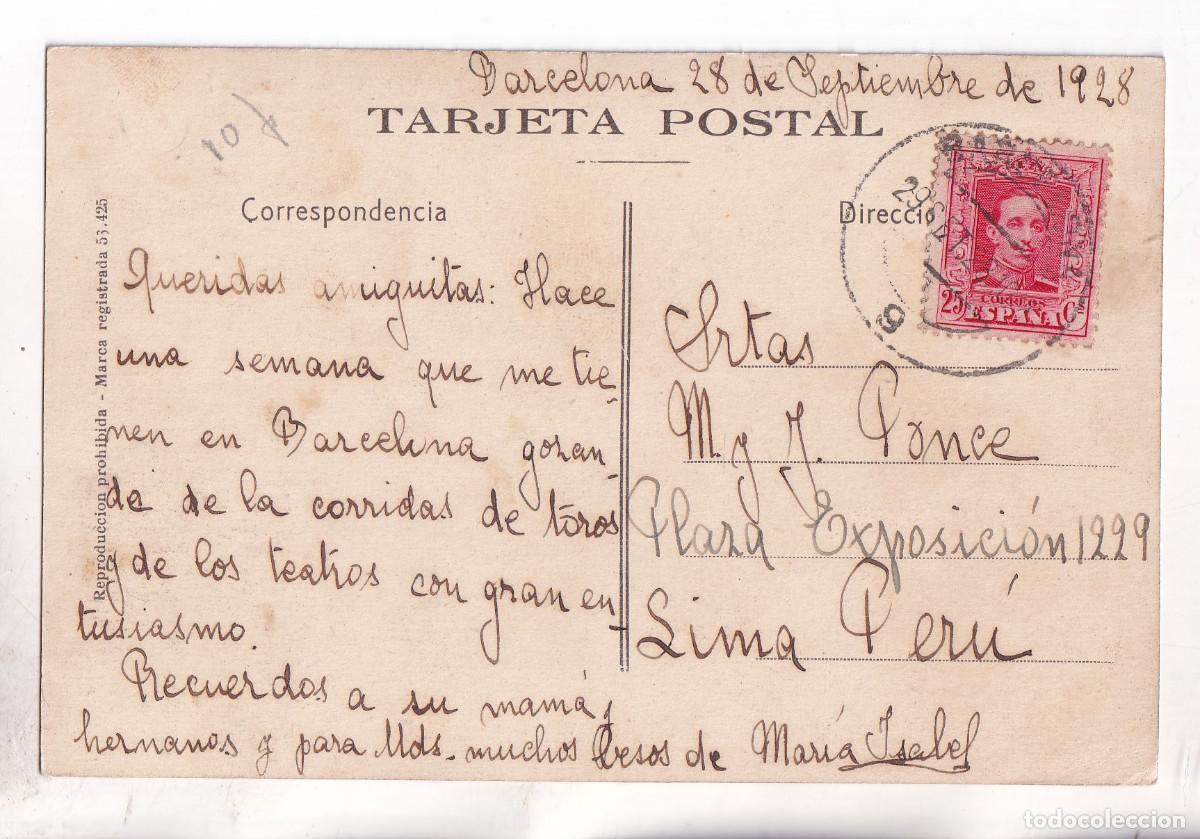 Barcelona 28 de Septiembre de 1928
TARJETA POSTAL
10
Correspondencia
Queridas amiguitas: Hace
una semana que me tie-
nen en Barcelona gozan-
do de la corridas de toros
y de los teatros con gran en-
tusiasmo.
Recuerdos a su mamá y
hermanos y para Uds. muchos besos de María Isabel
Reproduccion prohibida - Marca registrada 53.425
Direcció
29 SET
9
CORREOS
25 ESPAÑA Cs
Srtas
M. y J. Ponce
Plaza Exposición 1229
Lima Perú
todocoleccion